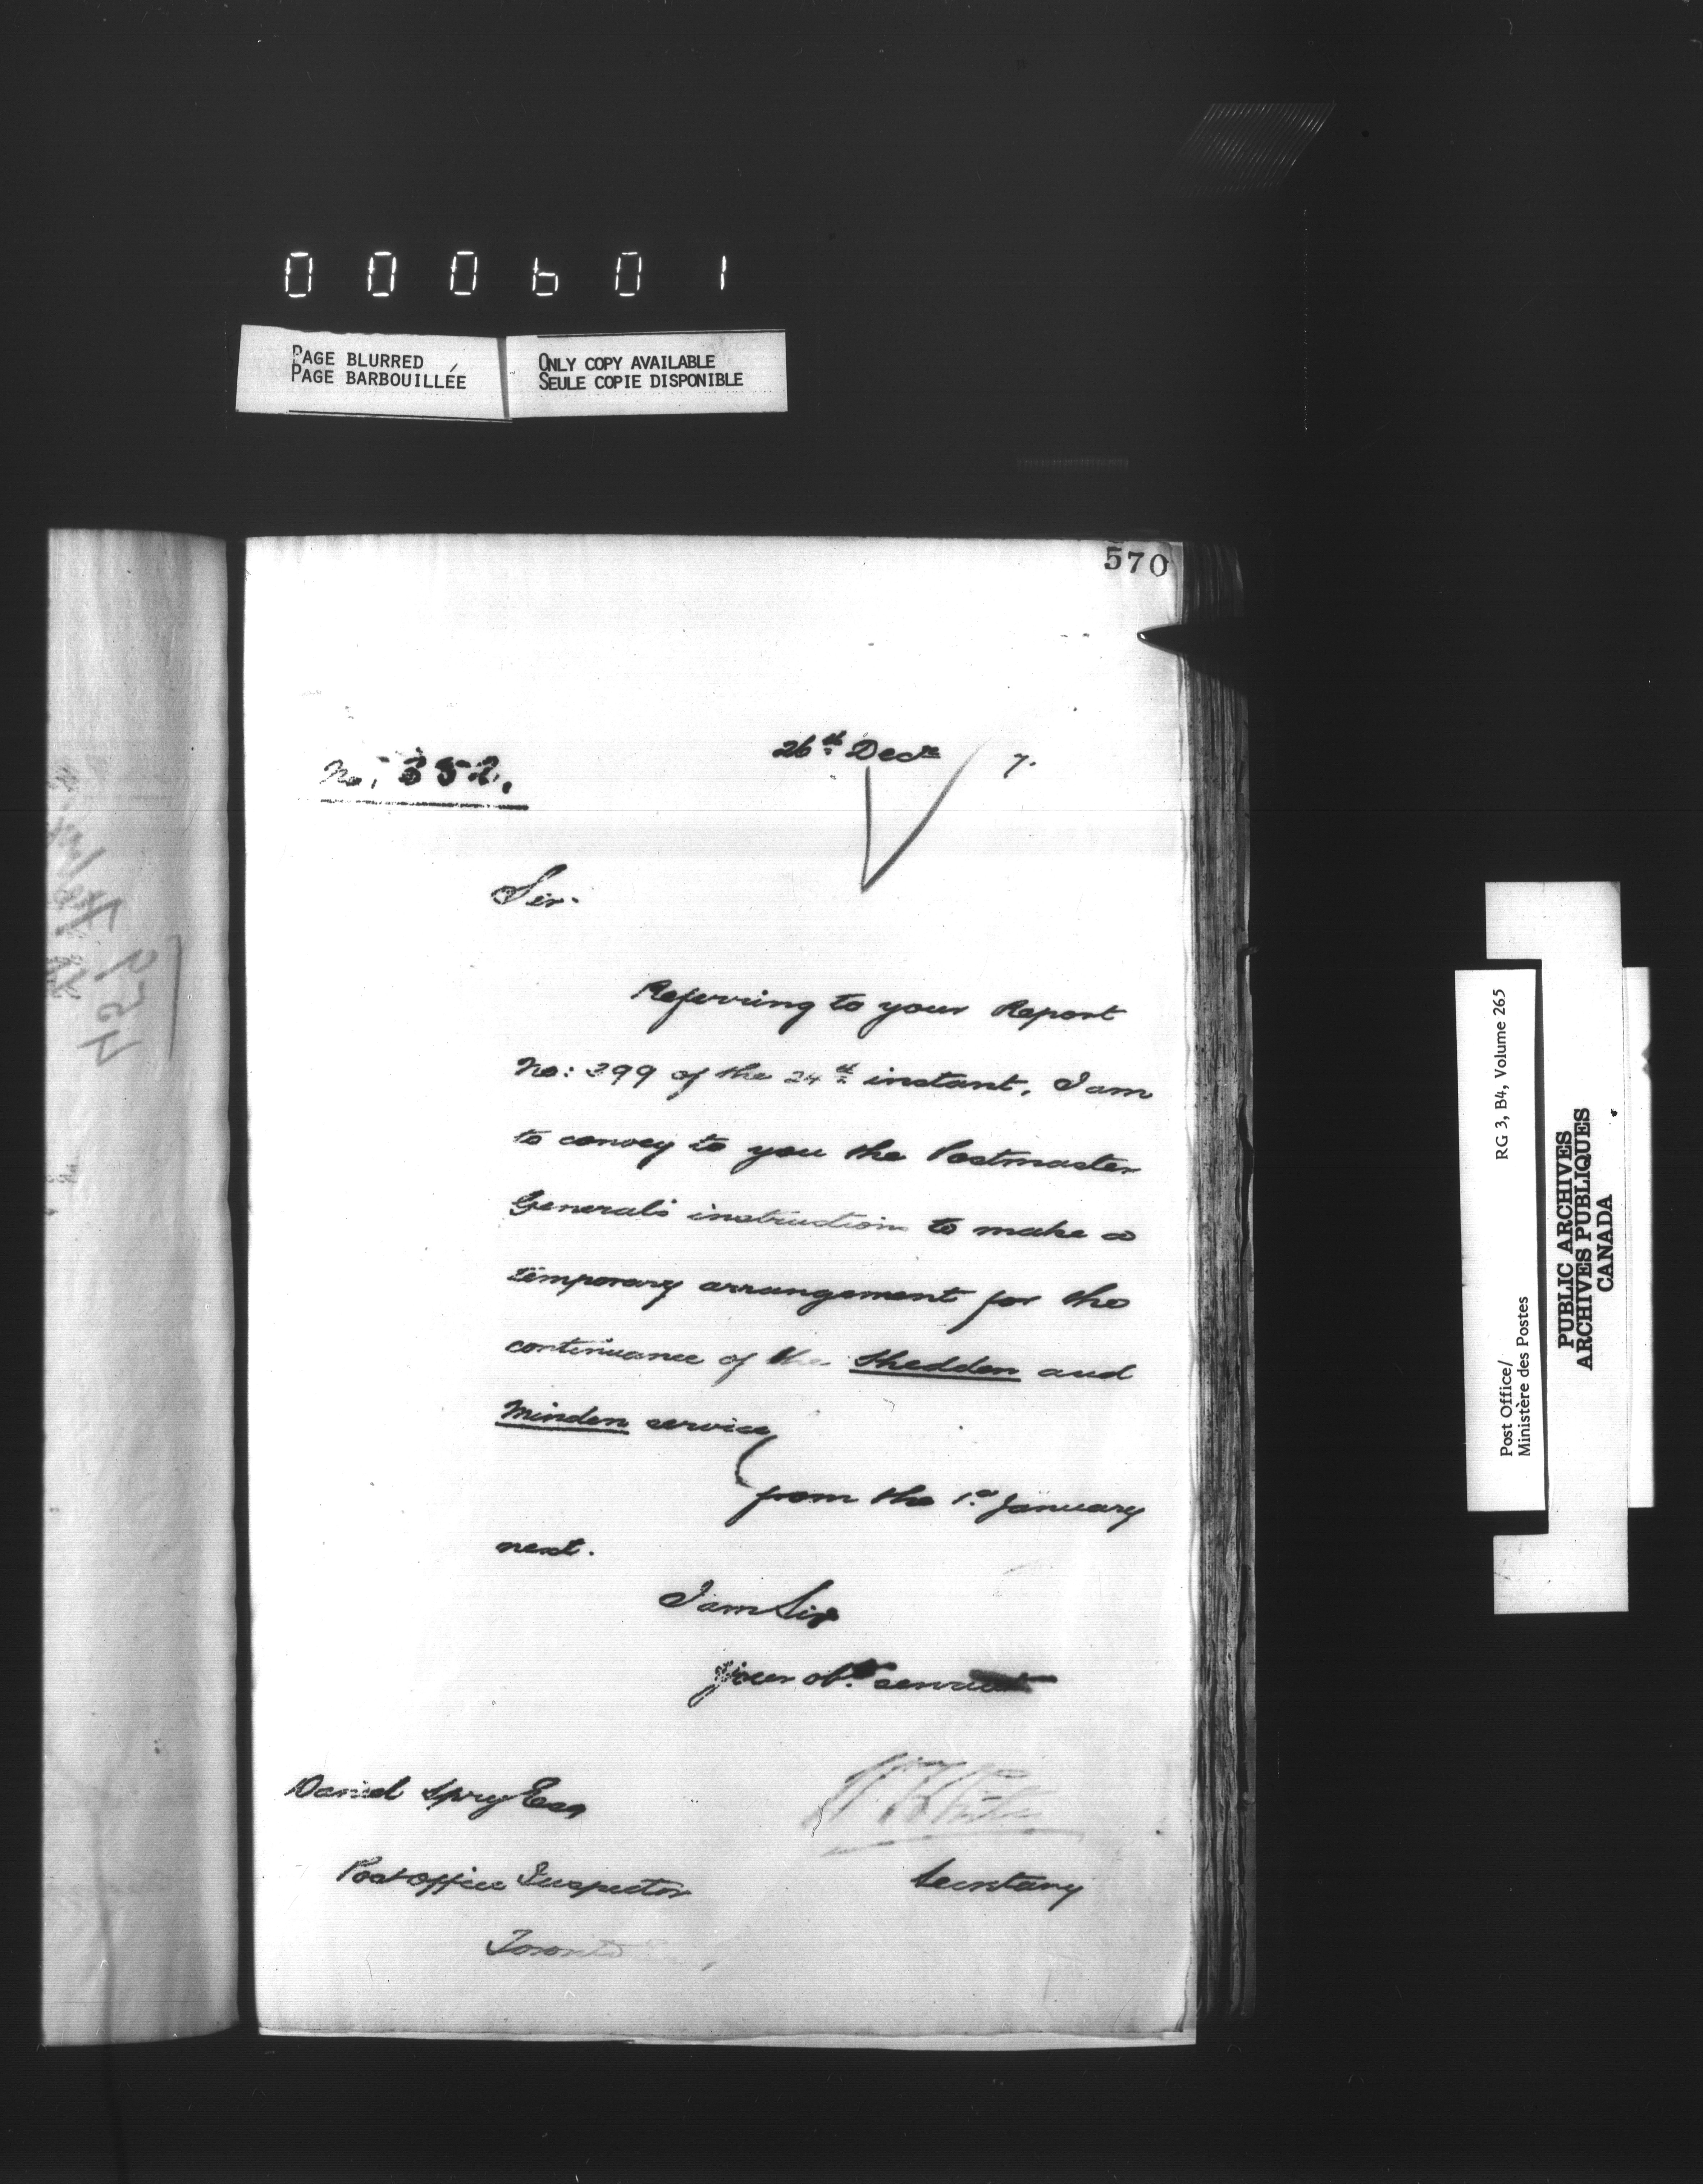 000601
PAGE BLURRED
PAGE BARBOUILLÉE
ONLY COPY AVAILABLE
SEULE COPIE DISPONIBLE
570
26th Decr 7.
No. 352.
Sir.
Referring to your Report
No: 399 of the 24th instant, I am
to convey to you the Postmaster
General's instructions to make a
temporary arrangement for the
continuance of the Shedden and
Minden service
from the 1st January
next.
I am Sir
Your obt. servant
Daniel Spry Esq
Post Office Inspector
Toronto
Secretary
Post Office/
Ministère des Postes
RG 3, B4, Volume 265
PUBLIC ARCHIVES
ARCHIVES PUBLIQUES
CANADA